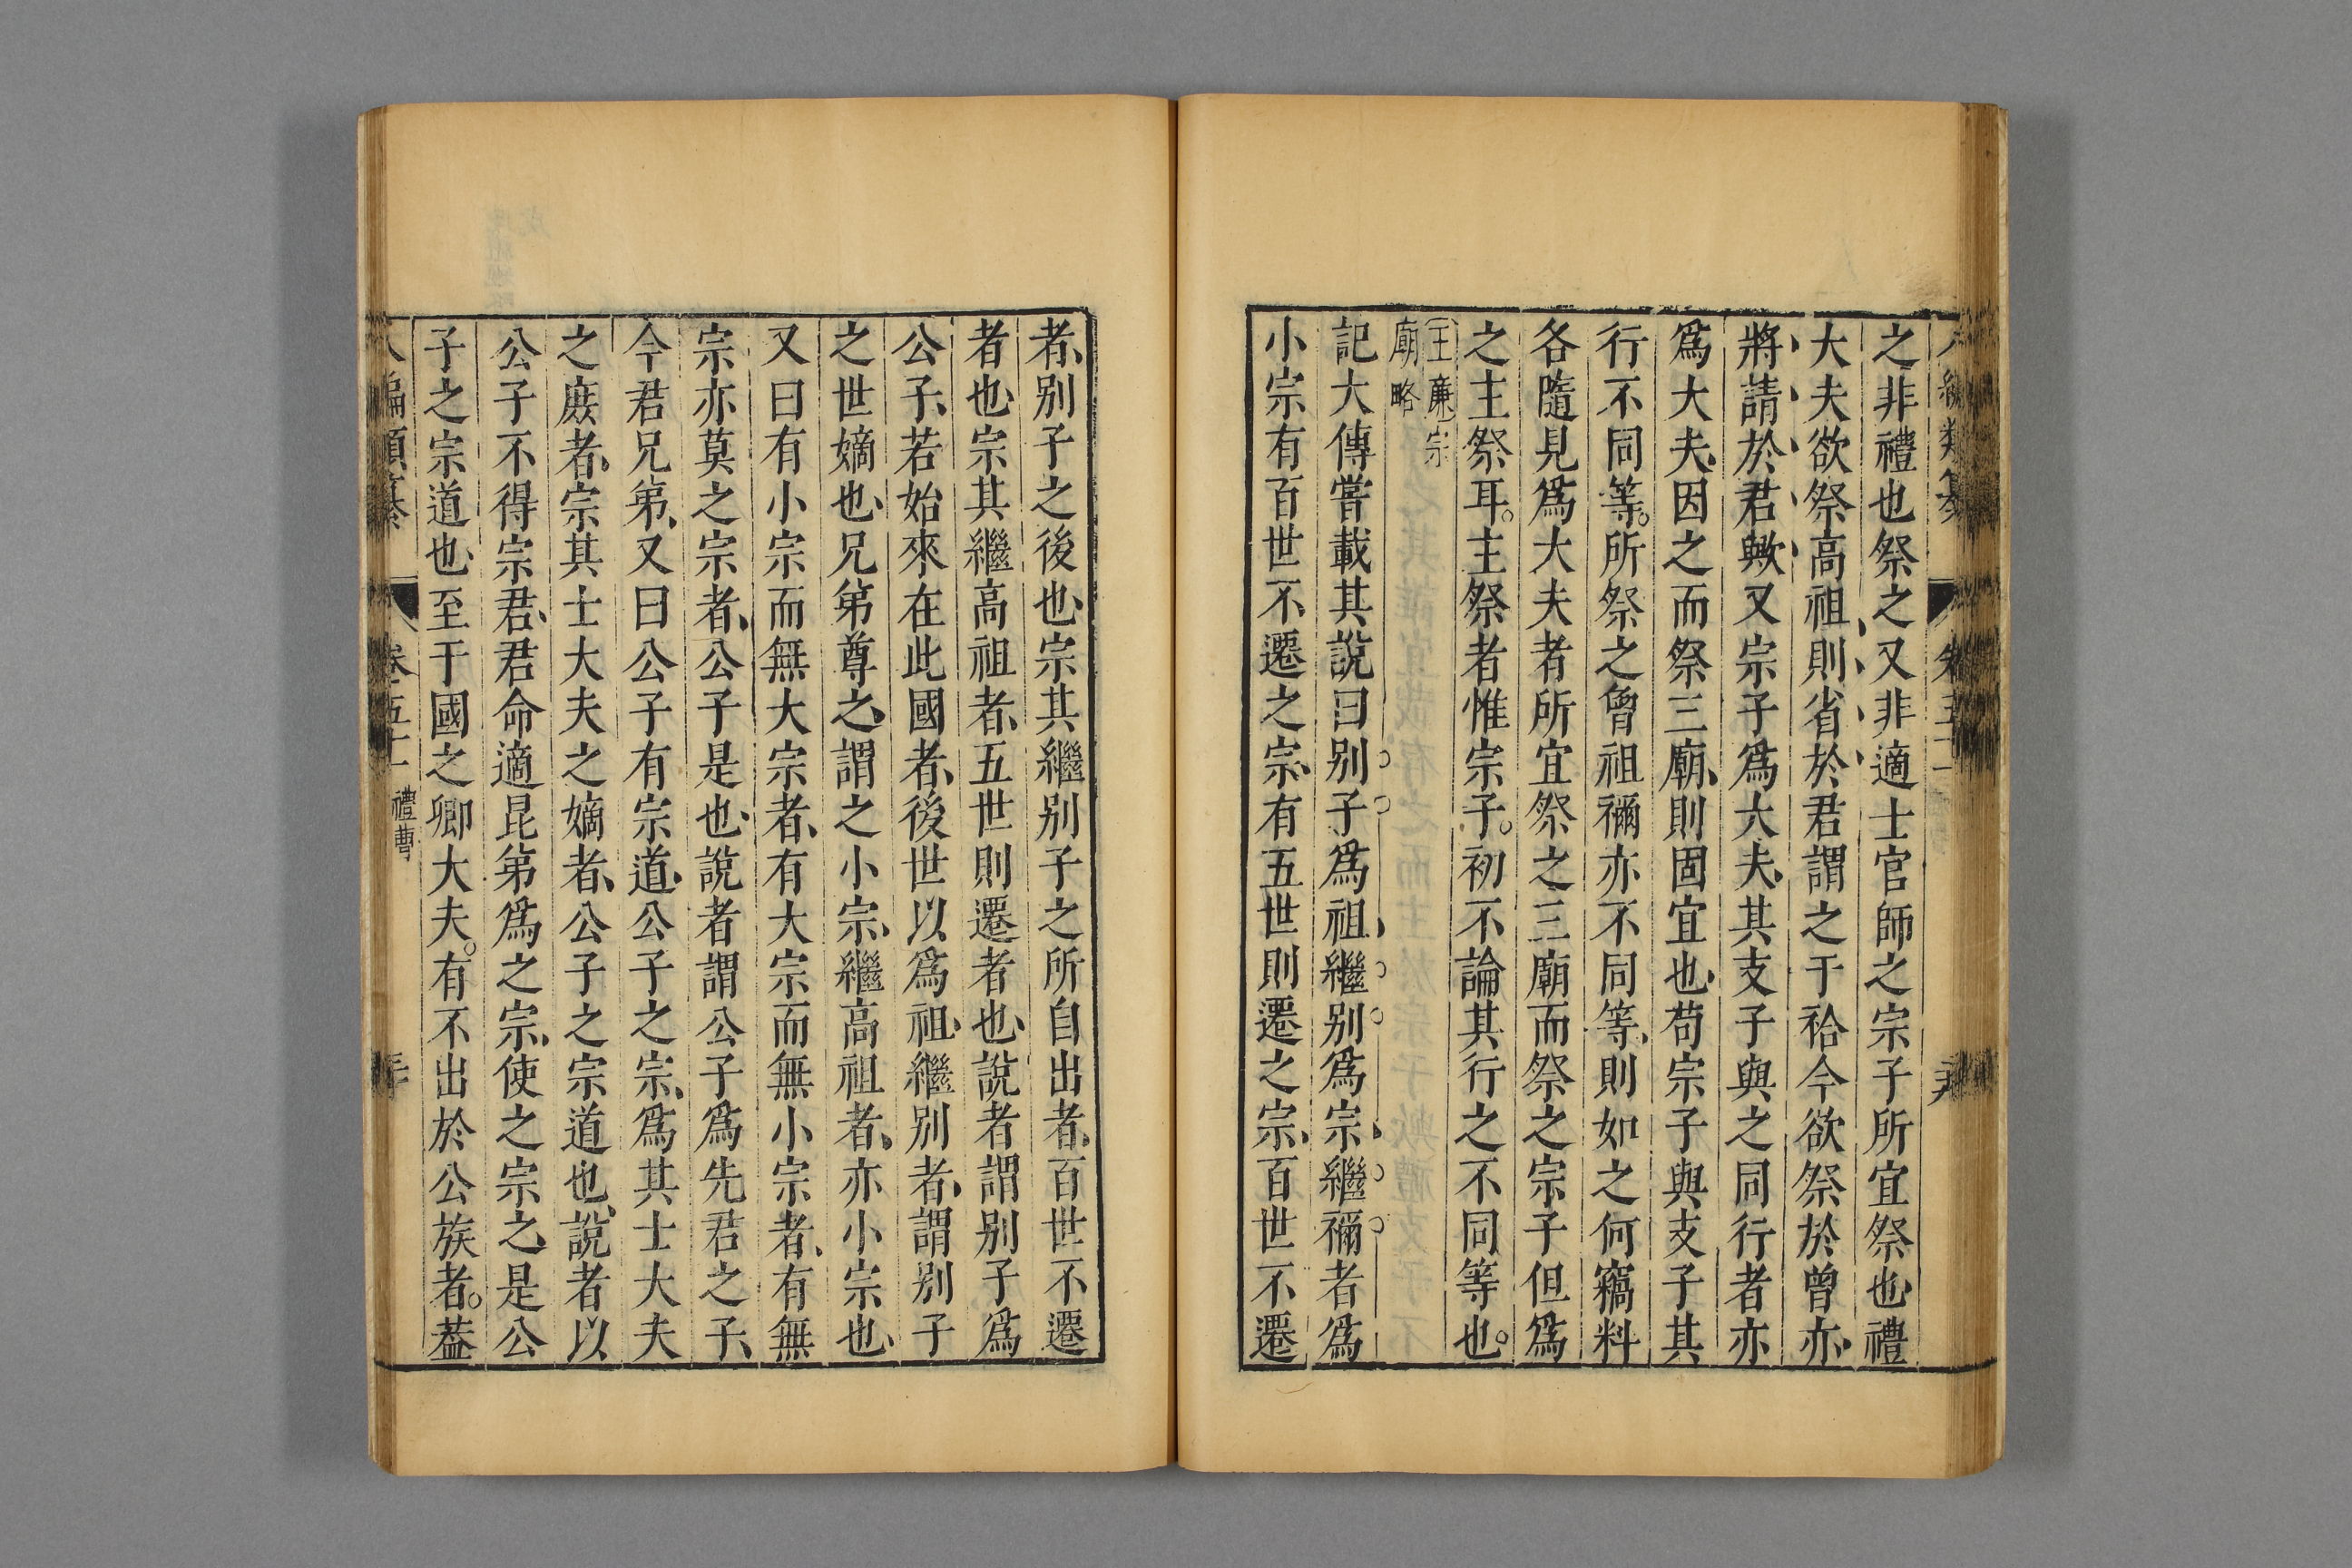 之非禮也祭之又非適士官師之宗子所宜祭也禮
大夫欲祭高祖則省於君謂之干祫今欲祭於曾亦
將請於君歟又宗子爲大夫其支子與之同行者亦
爲大夫因之而祭三廟則固宜也苟宗子與支子其
行不同等。所祭之曾祖禰亦不同等則如之何竊料
各隨見爲大夫者所宜祭之三廟而祭之宗子但爲
之主祭耳。主祭者惟宗子。初不論其行之不同等也。
王廉宗
廟略
記大傳嘗載其說曰別子爲祖繼別爲宗繼禰者爲
小宗有百世不遷之宗有五世則遷之宗百世不遷
者別子之後也宗其繼別子之所自出者百世不遷
者也宗其繼高祖者五世則遷者也說者謂別子爲
公子若始來在此國者後世以爲祖繼別者謂別子
之世嫡也兄第尊之謂之小宗繼高祖者亦小宗也
又曰有小宗而無大宗者有大宗而無小宗者有無
宗亦莫之宗者公子是也說者謂公子爲先君之子
今君兄第又曰公子有宗道公子之宗爲其士大夫
之庶者宗其士大夫之嫡者公子之宗道也說者以
公子不得宗君君命適昆第爲之宗使之宗之是公
子之宗道也至于國之卿大夫。有不出於公族者。葢
八編類纂 卷五十一 禮曹